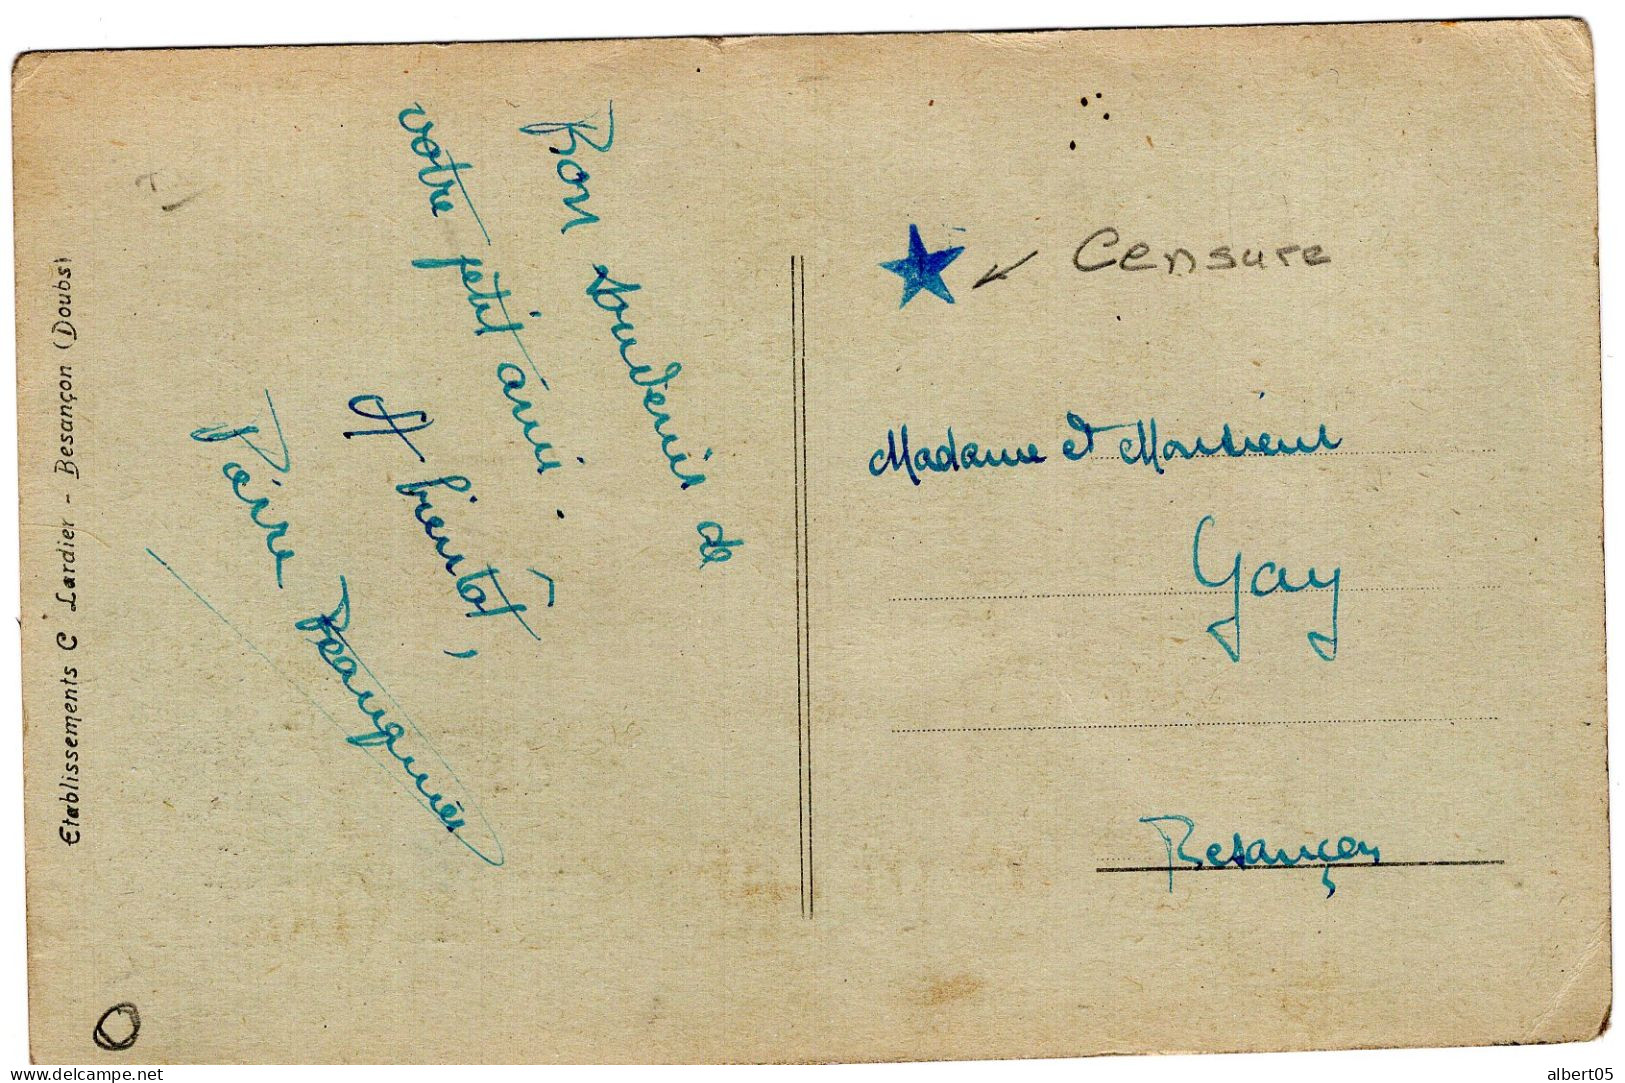 Etablissements C Lardier - Besançon (Doubs)
Bon souvenir de
votre petit ami.
A bientôt,
Beauquier
Censure
Madame et Monsieur
Gay
Besançon
albert05
delcampe.net